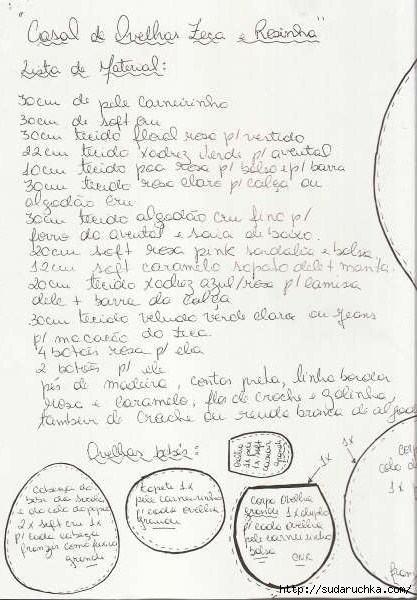 "Casal de Ovelhas Zeca e Rosinha"
Lista de Material:
30cm de pele carneirinho
30cm de soft cru
30cm tecido floral rosa p/ vestido
22cm tecido xadrez verde p/ avental
10cm tecido poa rosa p/ bolso e p/ barra
30cm tecido rosa claro p/ calça ou
algodão cru
30cm tecido algodão cru fino p/
forro do avental e saia de baixo.
20cm soft rosa pink sandália e bolsa.
12cm soft caramelo sapato dele + manta.
20cm tecido xadrez azul/rosa p/ camisa
dele + barra da calça
30cm tecido veludo verde claro ou Jeans
p/ macacão do Zeca
4 botões rosa p/ ela
2 botões p/ ele
pés de madeira, contas preta, linha bordar
rosa e caramelo, flor de croche e golinha,
também de croche ou renda branca de algod
Ovelhas bebês:
Cabeça do
bebê da sacola
e do colo do papai
2x soft cru 1x
p/ cada cabeça
franzir como fuxico
grande
Tapete 1x
pele carneirinho
p/ cada ovelha
grande
1x pele
1x soft
grande
Corpo ovelha
grande 1x duplo
p/ cada ovelha
pele carneirinho
bolsa
1x
1x
corpo
colo do
1x p
fran
http://sudaruchka.com/